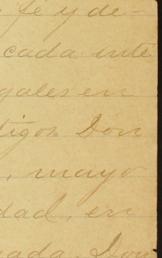 fe y de-
cada inte
gales en
tigos Don
, mayo
dad, en
ada. Don